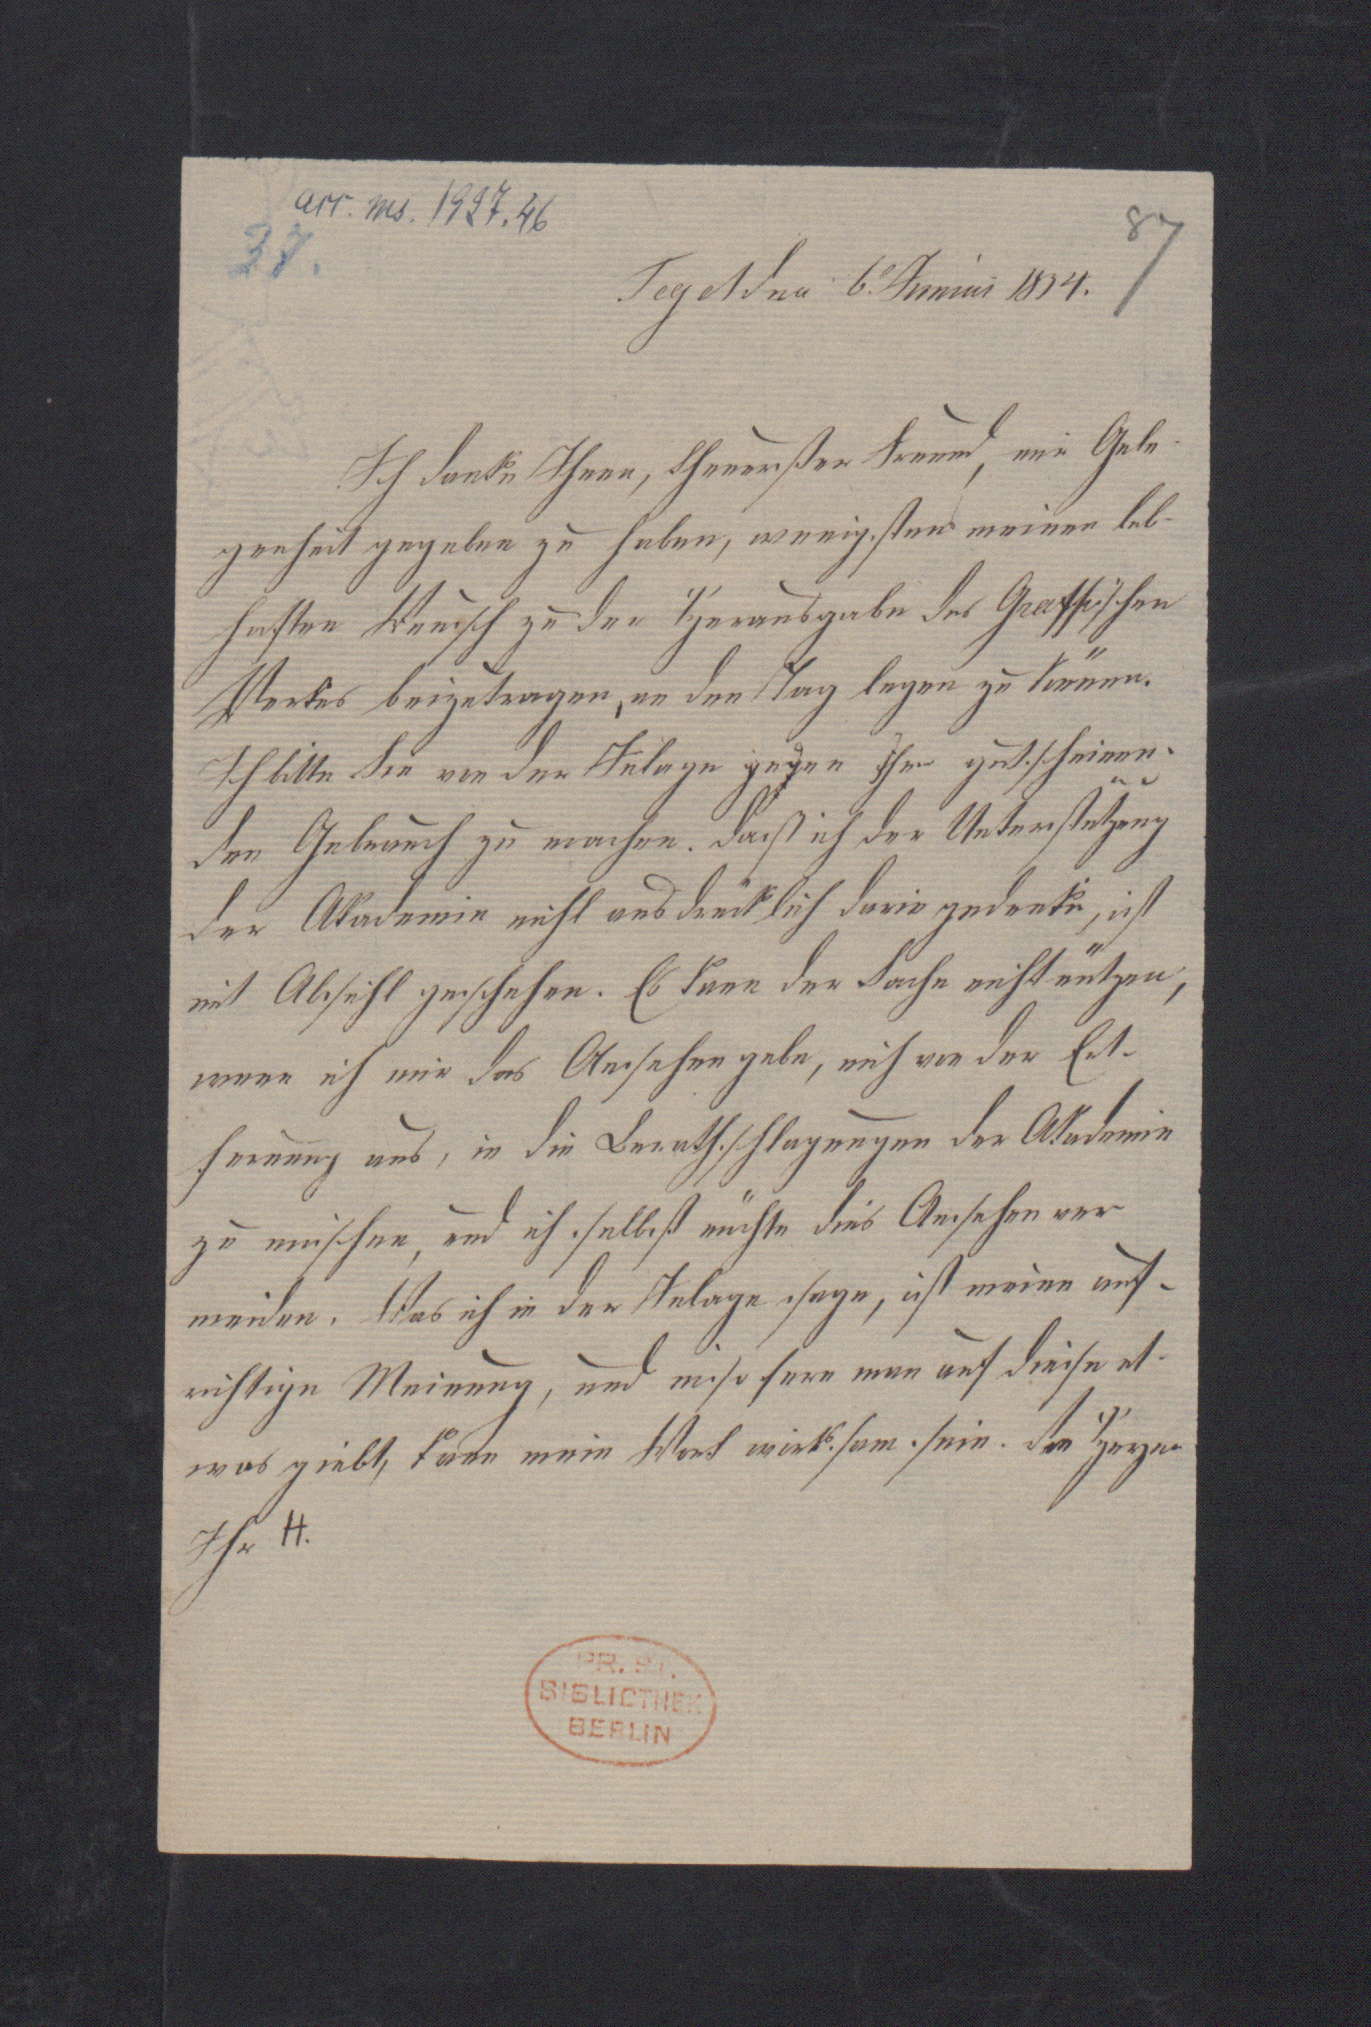 acc. ms. 1927.46
37.
87
Tegel den 6.t Junius 1834.
Ich danke Ihnen, theuerster Freund, mir Gele-
genheit gegeben zu haben, wenigstens meinen leb-
haften Wunsch zu der Herausgabe des Graffschen
Werkes beizutragen, an den Tag legen zu können.
Ich bitte Sie von der Anlage jeden Ihn gutscheinen-
den Gebrauch zu machen. Daß ich der Unterstützung
der Akademie nicht ausdrücklich darin gedenke, ist
mit Absicht geschehen. Es kann der Sache nicht nützen,
wenn ich mir das Ansehen gebe, mich von der Ent-
fernung aus, in die Berathschlagungen der Akademie
zu mischen, und ich selbst möchte dies Ansehen ver
meiden. Was ich in der Anlage sage, ist meine auf-
richtige Meinung, und insofern man auf diese et-
was giebt, kann mein Wort wirksam sein. Von Herzen
Ihr H.
PR. ST.
BIBLIOTHEK
BERLIN